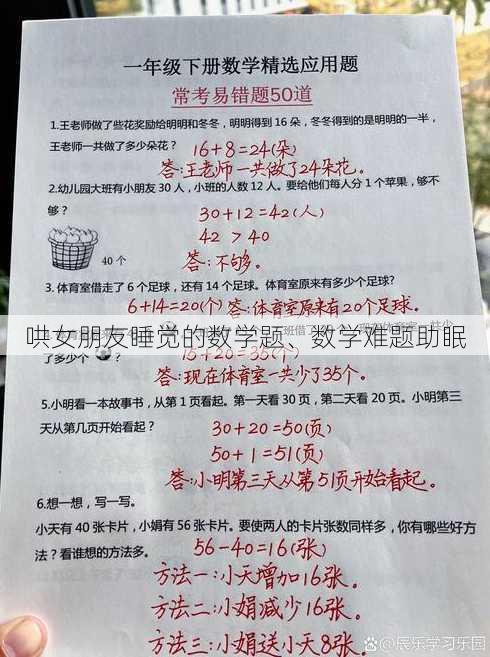 一年级下册数学精选应用题
常考易错题50道
1.王老师做了些花奖励给明明和冬冬，明明得到16朵，冬冬得到的是明明的一半，
王老师一共做了多少朵花？ 16+8=24(朵)
答：王老师一共做了24朵花。
2.幼儿园大班有小朋友30人，小班的人数12人。要给他们每人分1个苹果，够不
够？
30+12=42(人)
42 > 40
40个
答：不够。
3.体育室借走了6个足球，还有14个足球。体育室原来有多少个足球？
6+14=20(个) 答：体育室原来有20个足球。
哄女朋友睡觉的数学题、数学难题助眠
了多少个
15+20=35(个)
答：现在体育室一共少了35个。
5.小明看一本故事书，从第1页看起。第一天看30页，第二天看20页。小明第三
天从第几页开始看起？
30+20=50(页)
50+1=51(页)
答：小明第三天从第51页开始看起。
6.想一想，写一写。
小天有40张卡片，小娟有56张卡片。要使两人的卡片张数同样多，你有哪些好方
法？看谁想的方法多。 56-40=16(张)
方法一：小天增加16张。
方法二：小娟减少16张。
方法三：小娟送小天8张。
辰乐学习乐园